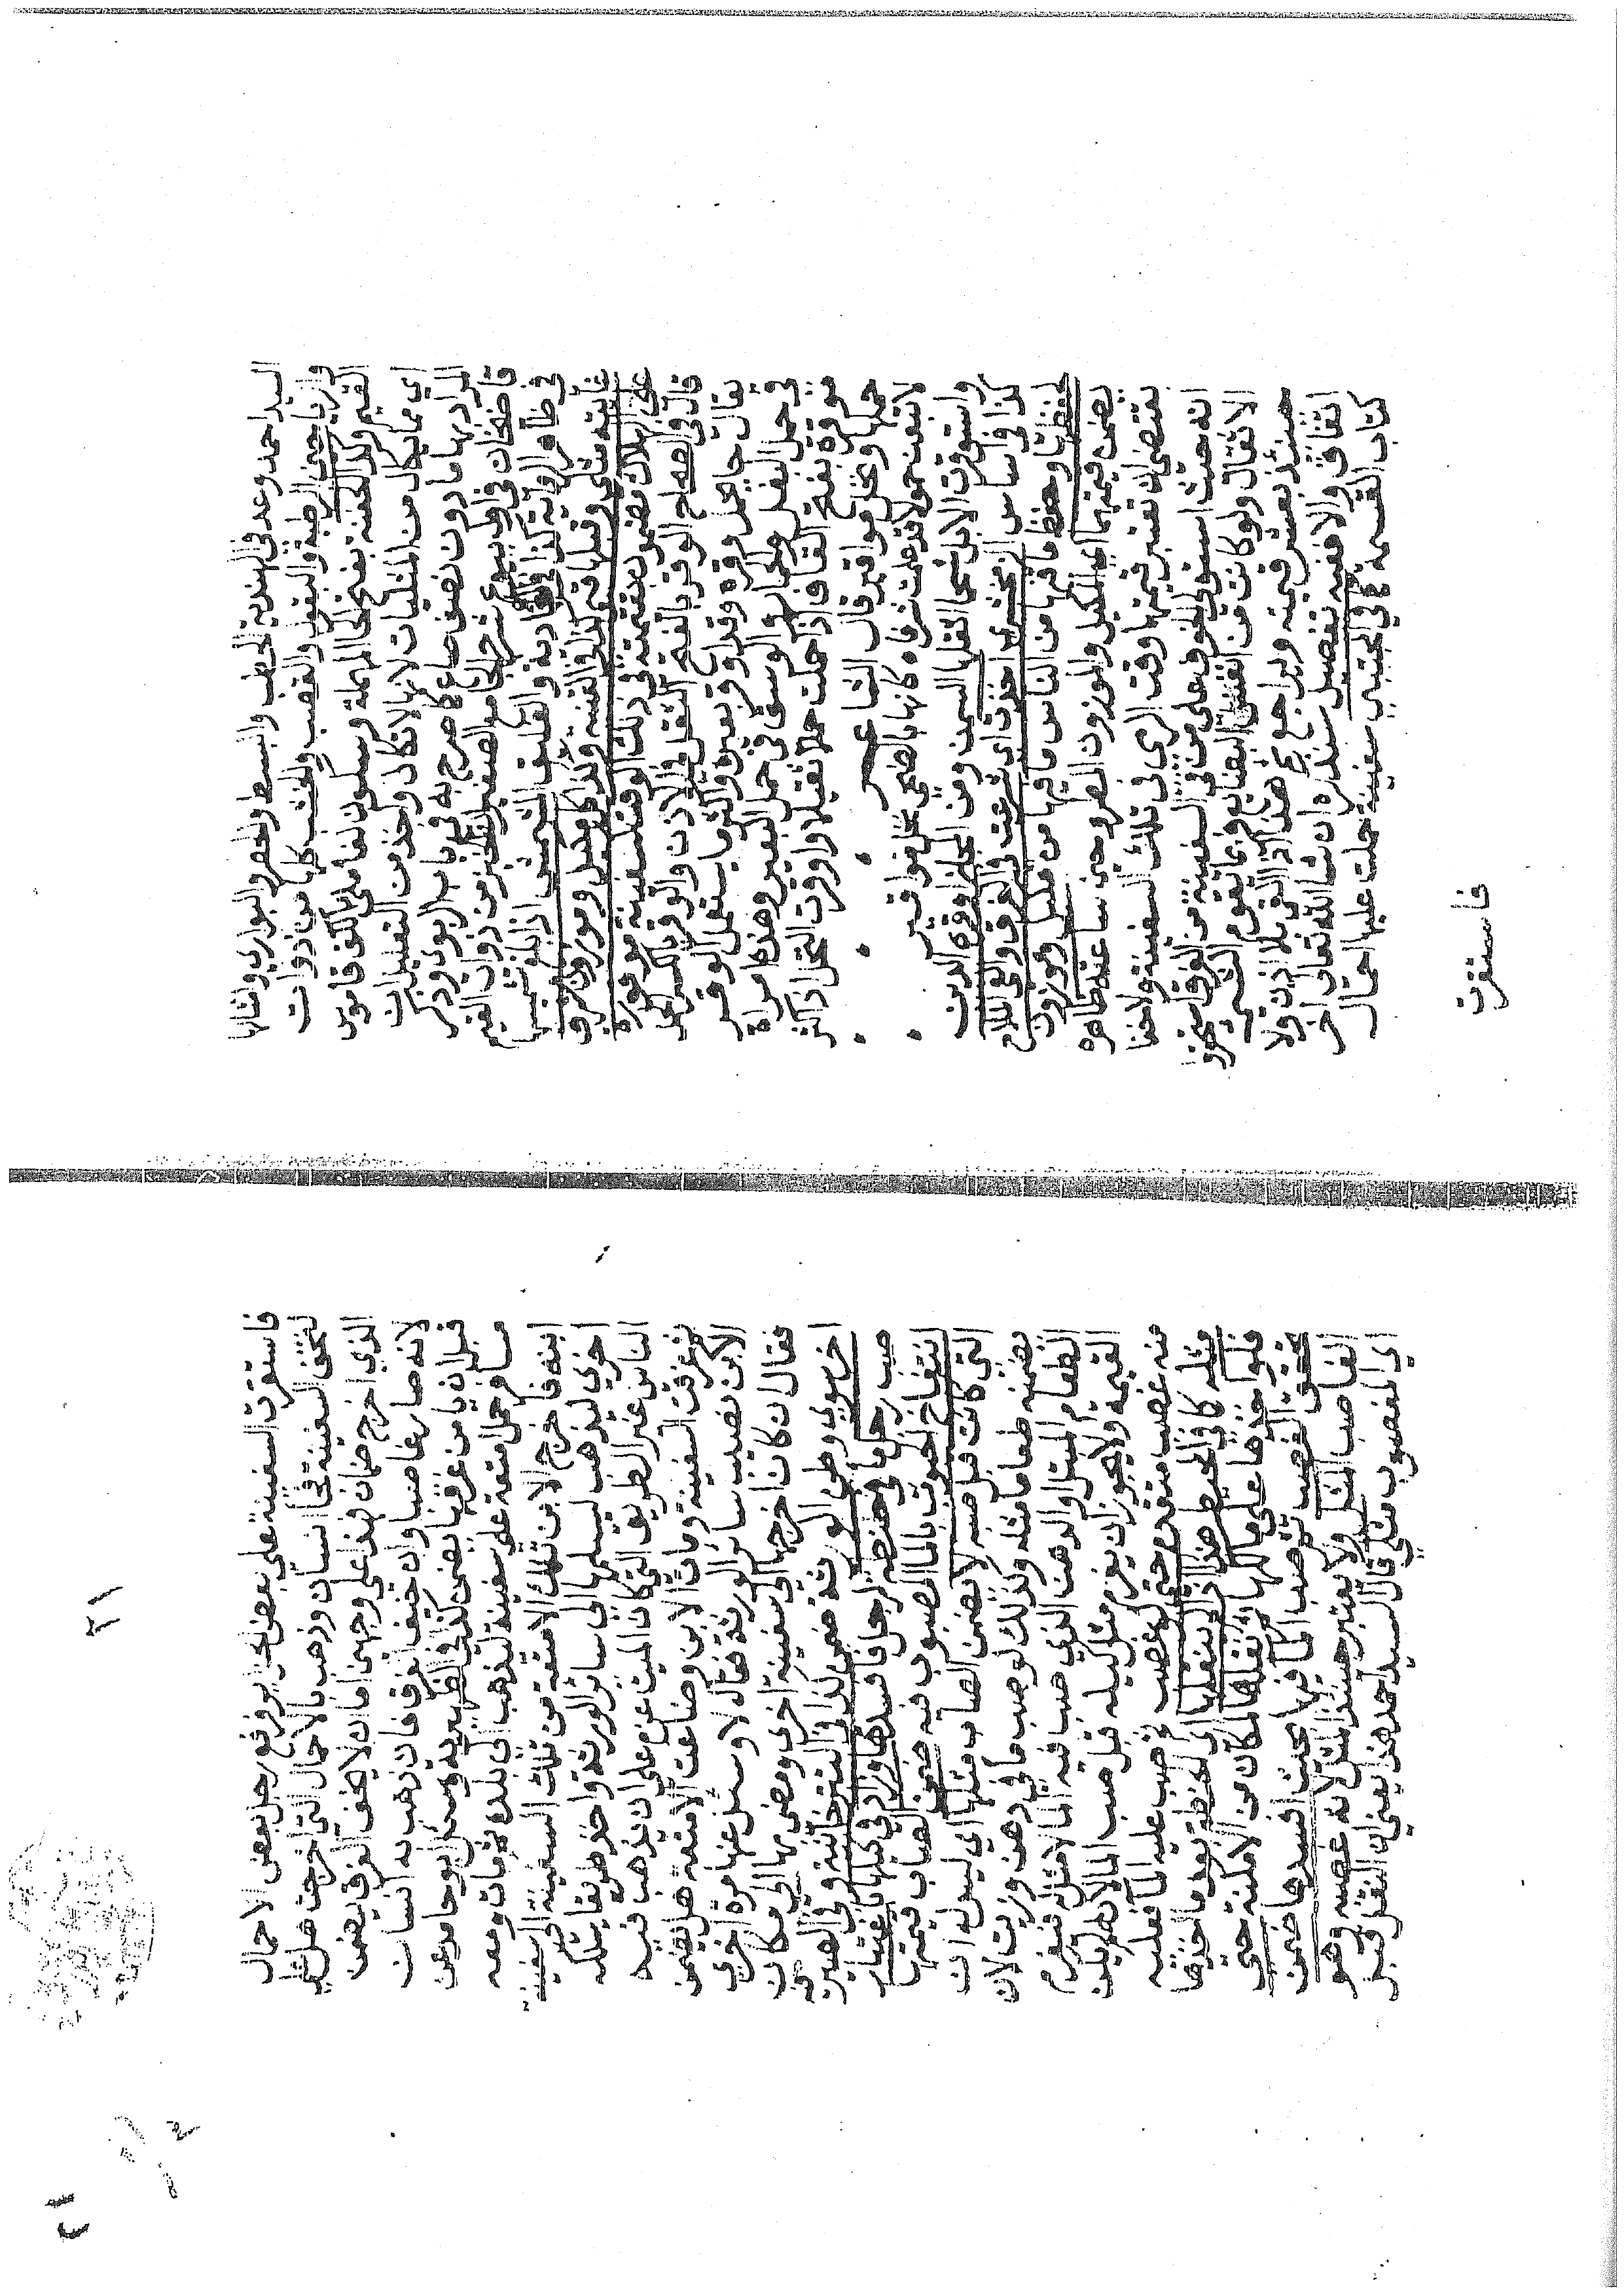 السيد احمد وعد في الهندية الحطب والبسط والحصر والبواري وامثالها
والرياحين الرطبة والبقول والقصب والخشب كلها من ذوات
القيم وكذا الحفنة بفتح الحاء المهملة وسكون الفاء ملء الكف قاموس
اي مما يكال من المثليات لانها لا تكال واخذ من التعليل ان
المراد بها ما دون نصف صاع كما صرح به في باب الربوى وذكر
قاضيخان في اول بيوع شرح الجامع الصغير الخبز من ذوات القيم
في ظاهر الرواية كذا في العمادية والقليق الشمس اذا
غائبته مثلي وقبلها قيمي كذا في القنية وكذا كل مكيل وموزون مشرف
على الهلاك مضمون بقيمته في ذلك الوقت كسفينة موقورة
قال في الصحاح الوقر بالفتح الثقل في الاذن والوقر بالكسر الحمل
يقال جاء يحمل وقره وقد اوقر بعيره واكثر ما يستعمل الوقر
في حمل البغل والحمار والوسق في حمل البعير وهذه امراة
موقرة بفتح القاف اذا حملت حملا ثقيلا واوقرت النخل اذا كثر
حملها ونخل مواقر قال الشاعر
لا تتبعن حمولا قد علمت شرفاه كانها بالضحى نخل مواقير
واستوقرت الابل شحما اثقلها السمن ومن المجاز اوقره الدين
كذا في اساس الزمخشري اخذت اي شرعت في الغرق والقى الملاح
لحفظها وحفظ ما فيها من الناس ما فيها من مكيل وموزون
يضمن قيمتها اي المكيل والموزون المطروحين ساعته ظاهره
يقتضي ان تعتبر قيمتها وقت الرمي في تلك السفينة ولا خفا
انه حيث استولى الخوف على من في السفينة من الغرق
الا ثقال ولو كانت من انفس البضايع وبما تقوم الشيء
حينئذ بعشر قيمته وليراجع ثم هذا اذا القي بلا اذن ولا
اتفاق والا ففيه تفصيل سنذكره ان شا الله تعالى آخر
كتاب القسمة في المجتبى سفينة حملت عليها احمال
فاستقرت
٢١
فاستقرت السفينة على بعض الجزاير فرفع رجل بعض الاحمال
لتخف السفينة فجا انسان وذهب بالاحمال التي اخرجت هل على
الذي اخرج ضمان فهذا على وجهين اما ان لا يخف الغرق يضمن
لانه صار غاصبا وان خيف الغرق فان ذهب به انسان
قبل ان يامن غرقها لا يضمن كذا في الظهيرية وسئل ابو حامد عن
مسافر حمل امتعة على سفينة ليذهب الى بلده ثم مات ومعه
ابنه فاخرج الابن تلك الامتعة من تلك السفينة الى سفينة
اخرى ليذهب ليسلمها الى سائر الورثة واخذ طريقا يسلكه
الناس غير الطريق التي كان الميت عزم على ان يذهب فيه
ثم غرقت السفينة ومات الابن وضاعت الامتعة هل يضمن
الابن نصيب سائر الورثة فقال لا وسئل عنها مرة اخرى
فقال ان كان اخرجها الى سفينة اخرى ومضى بها الى مكان
اخر سوى وطن الورثة ضمن كذا في التترخانية وفي الصيرفية
صب رجل ماء في حنطة لرجل فافسدها وزاد في كيلها باعتبار
انتفاخ الحبوب بالماء المصبوب فيه ضمن الصاب قيمتها
التي كانت قبل صبه لا يضمن الصاب مثلها اي ليس له ان
يضمنه طعاما مثله وكذلك لو صب ماء في دهن وزيت لان
الطعام المبتل او الدهن الذي صب فيه الماء لا مثل له فيغرم
القيمة ولا يجوز ان يغرم مثل كيله قبل صب الماء لانه لم يكن
منه غصب متقدم حتى لو غصب ثم صب عليه الماء فعليه
مثله كما في المحيط هذا اذا لم ينقلها اي الحنطة بعد ما اخذها
فلو اخذها على مالكها ونقلها لمكان من الامكنة حتى
تحقق الغصب ثم صب الماء فيها بحيث افسدها ضمن
الغاصب المثل ولا يعتبر حينئذ المثل لانه غصبه وهو
اي المغصوب مثلي قال السيد احمد هذا يعني ان النقل قبل